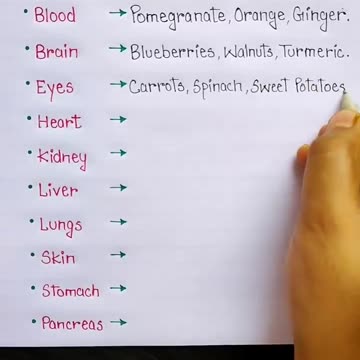 • Blood → Pomegranate, Orange, Ginger.
• Brain → Blueberries, Walnuts, Turmeric.
• Eyes → Carrots, Spinach, Sweet Potatoes
• Heart →
• Kidney →
• Liver →
• Lungs →
• Skin →
• Stomach →
• Pancreas →